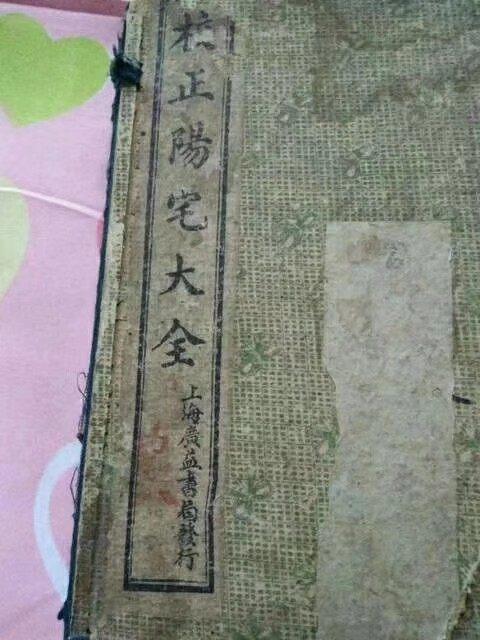 校正陽宅大全
上海廣益書局發行